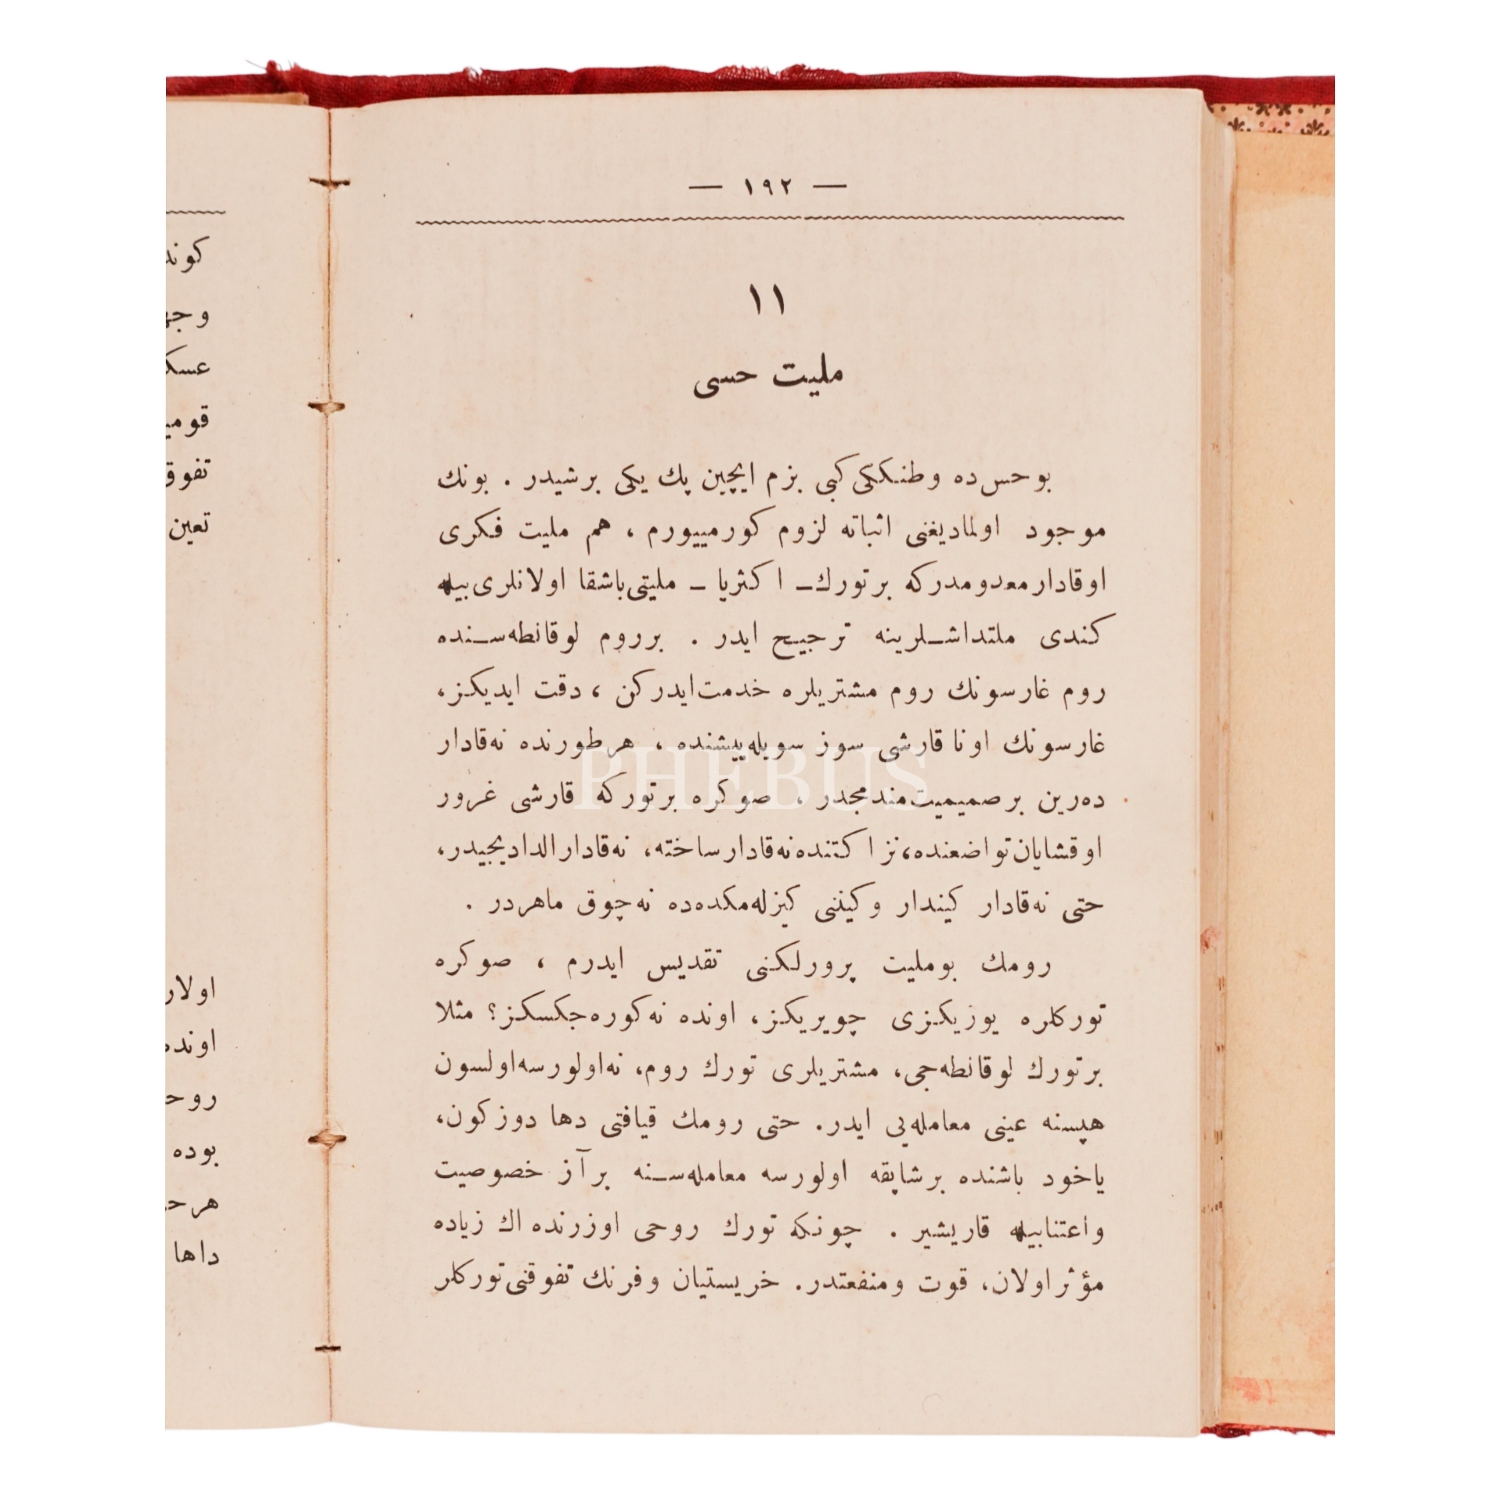 — ١٩٢ —
١١
مليت حسی
بو حس‌ده وطنككی كبی بزم ايچين پك يكی برشيدر . بونك
موجود اولماديغنی اثباته لزوم كورمييورم ، هم مليت فكری
اوقادار معدومدركه برتورك ــ اكثريا ــ مليتی باشقا اولانلری بيله
كندی ملتداشـلرينه ترجيح ايدر . برروم لوقانطه‌سـنده
روم غارسونك روم مشتريلره خدمت ايدركن ، دقت ايديكز،
غارسونك اونا قارشی سوز سويله‌ييشنده ، هرطورنده نه‌قادار
ده‌رين بر صميميت مندمجدر ، صوكره برتوركه قارشی غرور
اوقشايان تواضعنده، نزاكتنده نه‌قادار ساخته، نه‌قادار الداديجيدر،
حتی نه‌قادار كيندار و كيننی كيزله‌مكده‌ده نه‌چوق ماهردر .
رومك بو مليت پرورلكنی تقديس ايدرم ، صوكره
توركلره يوزيكزی چويريكز، اونده نه‌كوره‌جكسكز؟ مثلا
برتورك لوقانطه‌جی، مشتريلری تورك روم، نه‌اولورسه‌اولسون
هپسنه عينی معامله‌يی ايدر. حتی رومك قيافتی دها دوزكون،
ياخود باشنده برشاپقه اولورسه معامله‌سـنه برآز خصوصيت
واعتنابيله قاريشير . چونكه تورك روحی اوزرنده اك زياده
مؤثر اولان، قوت ومنفعتدر. خريستيان وفرنك تفوقنی توركلر
كوند
وجه
عسك
قومي
تفوق
تعين
اولار
اوند
روح
بوده
هرح
داها
PHEBUS